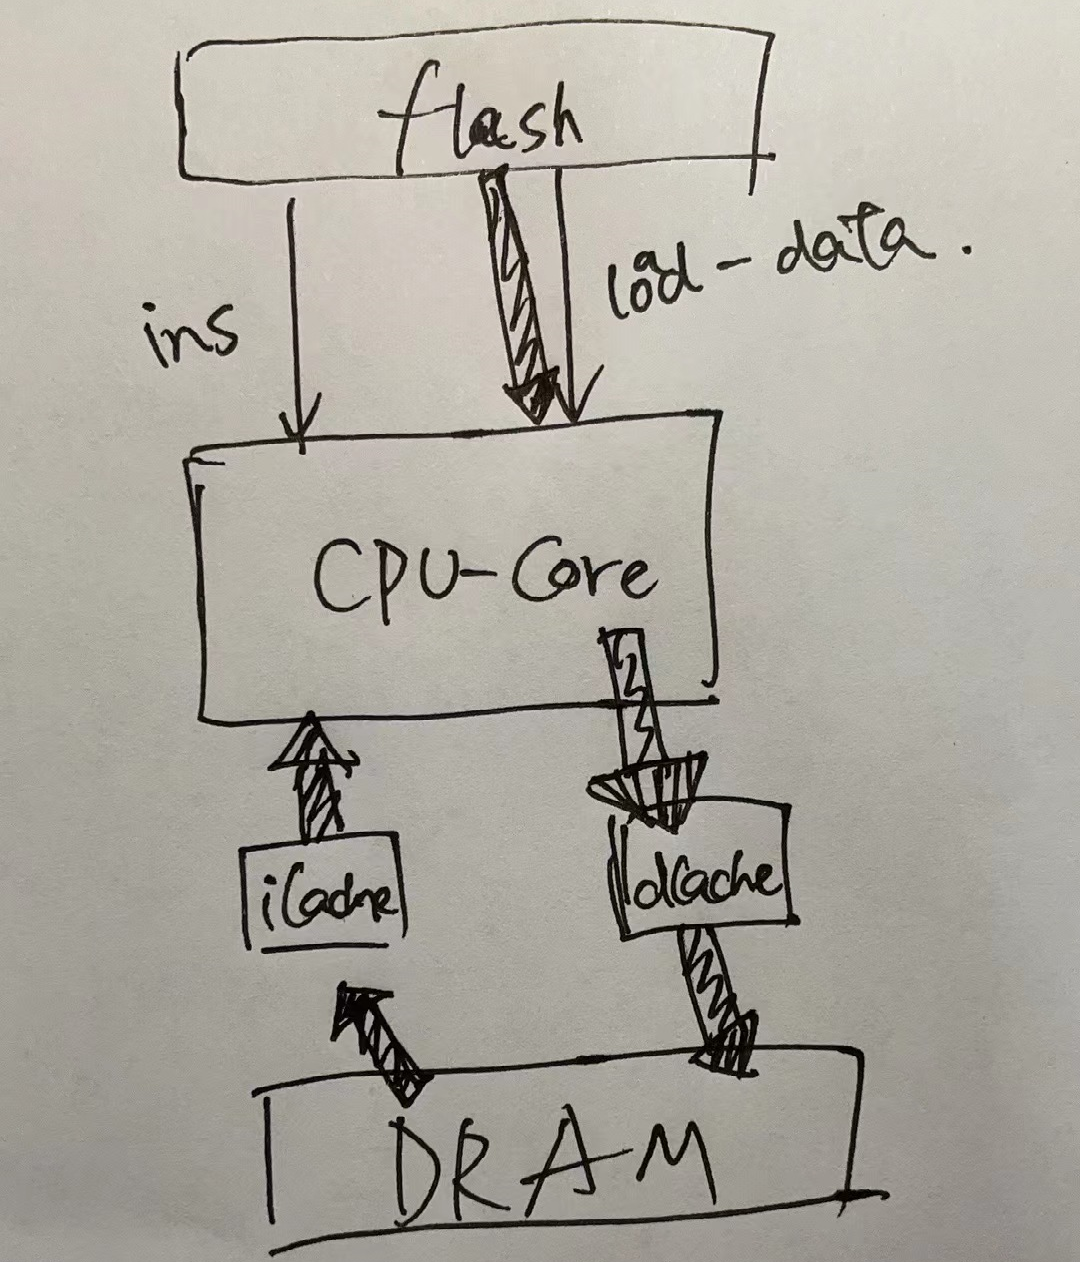 flash
ins
load-data.
CPU-Core
iCache
dCache
DRAM